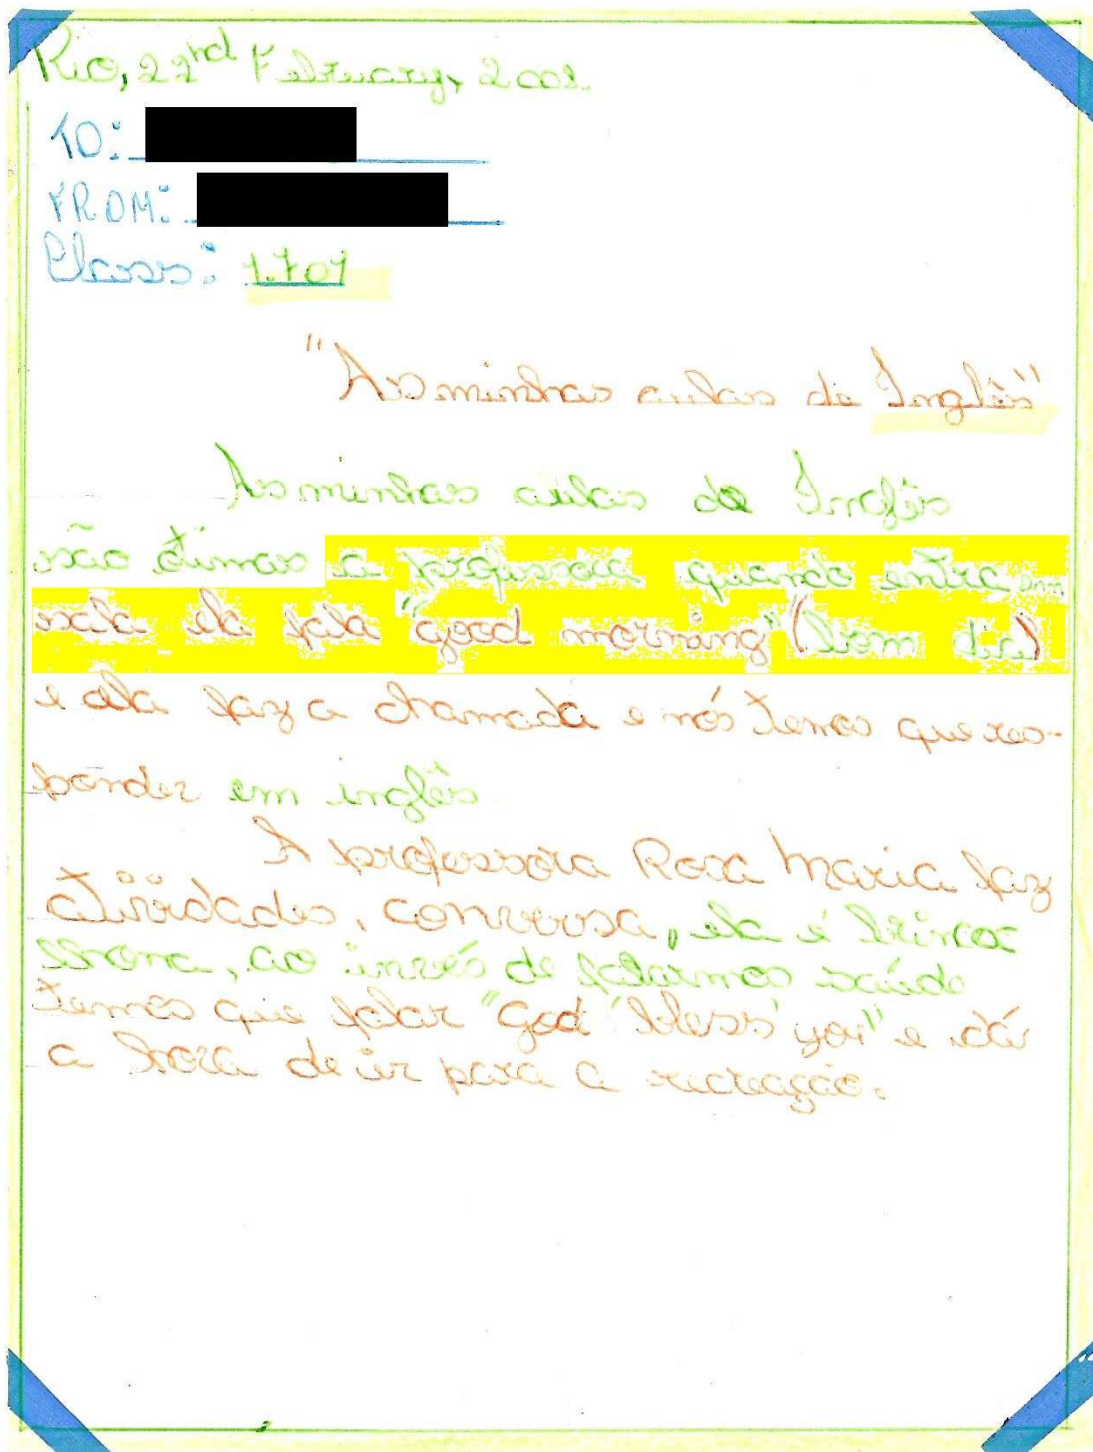 Rio, 22nd February, 2008.
TO:
FROM:
Class: 1.701
"As minhas aulas de Inglês"
As minhas aulas de Inglês
são ótimas a professora quando entra em
sala ela fala "good morning" (bom dia)
e ela faz a chamada e nós temos que res-
ponder em inglês.
A professora Rosa Maria faz
atividades, conversa, ela é brinca
lhona, ao invés de falarmos saúde
temos que falar "God bless you" e dá
a hora de ir para a recreação.